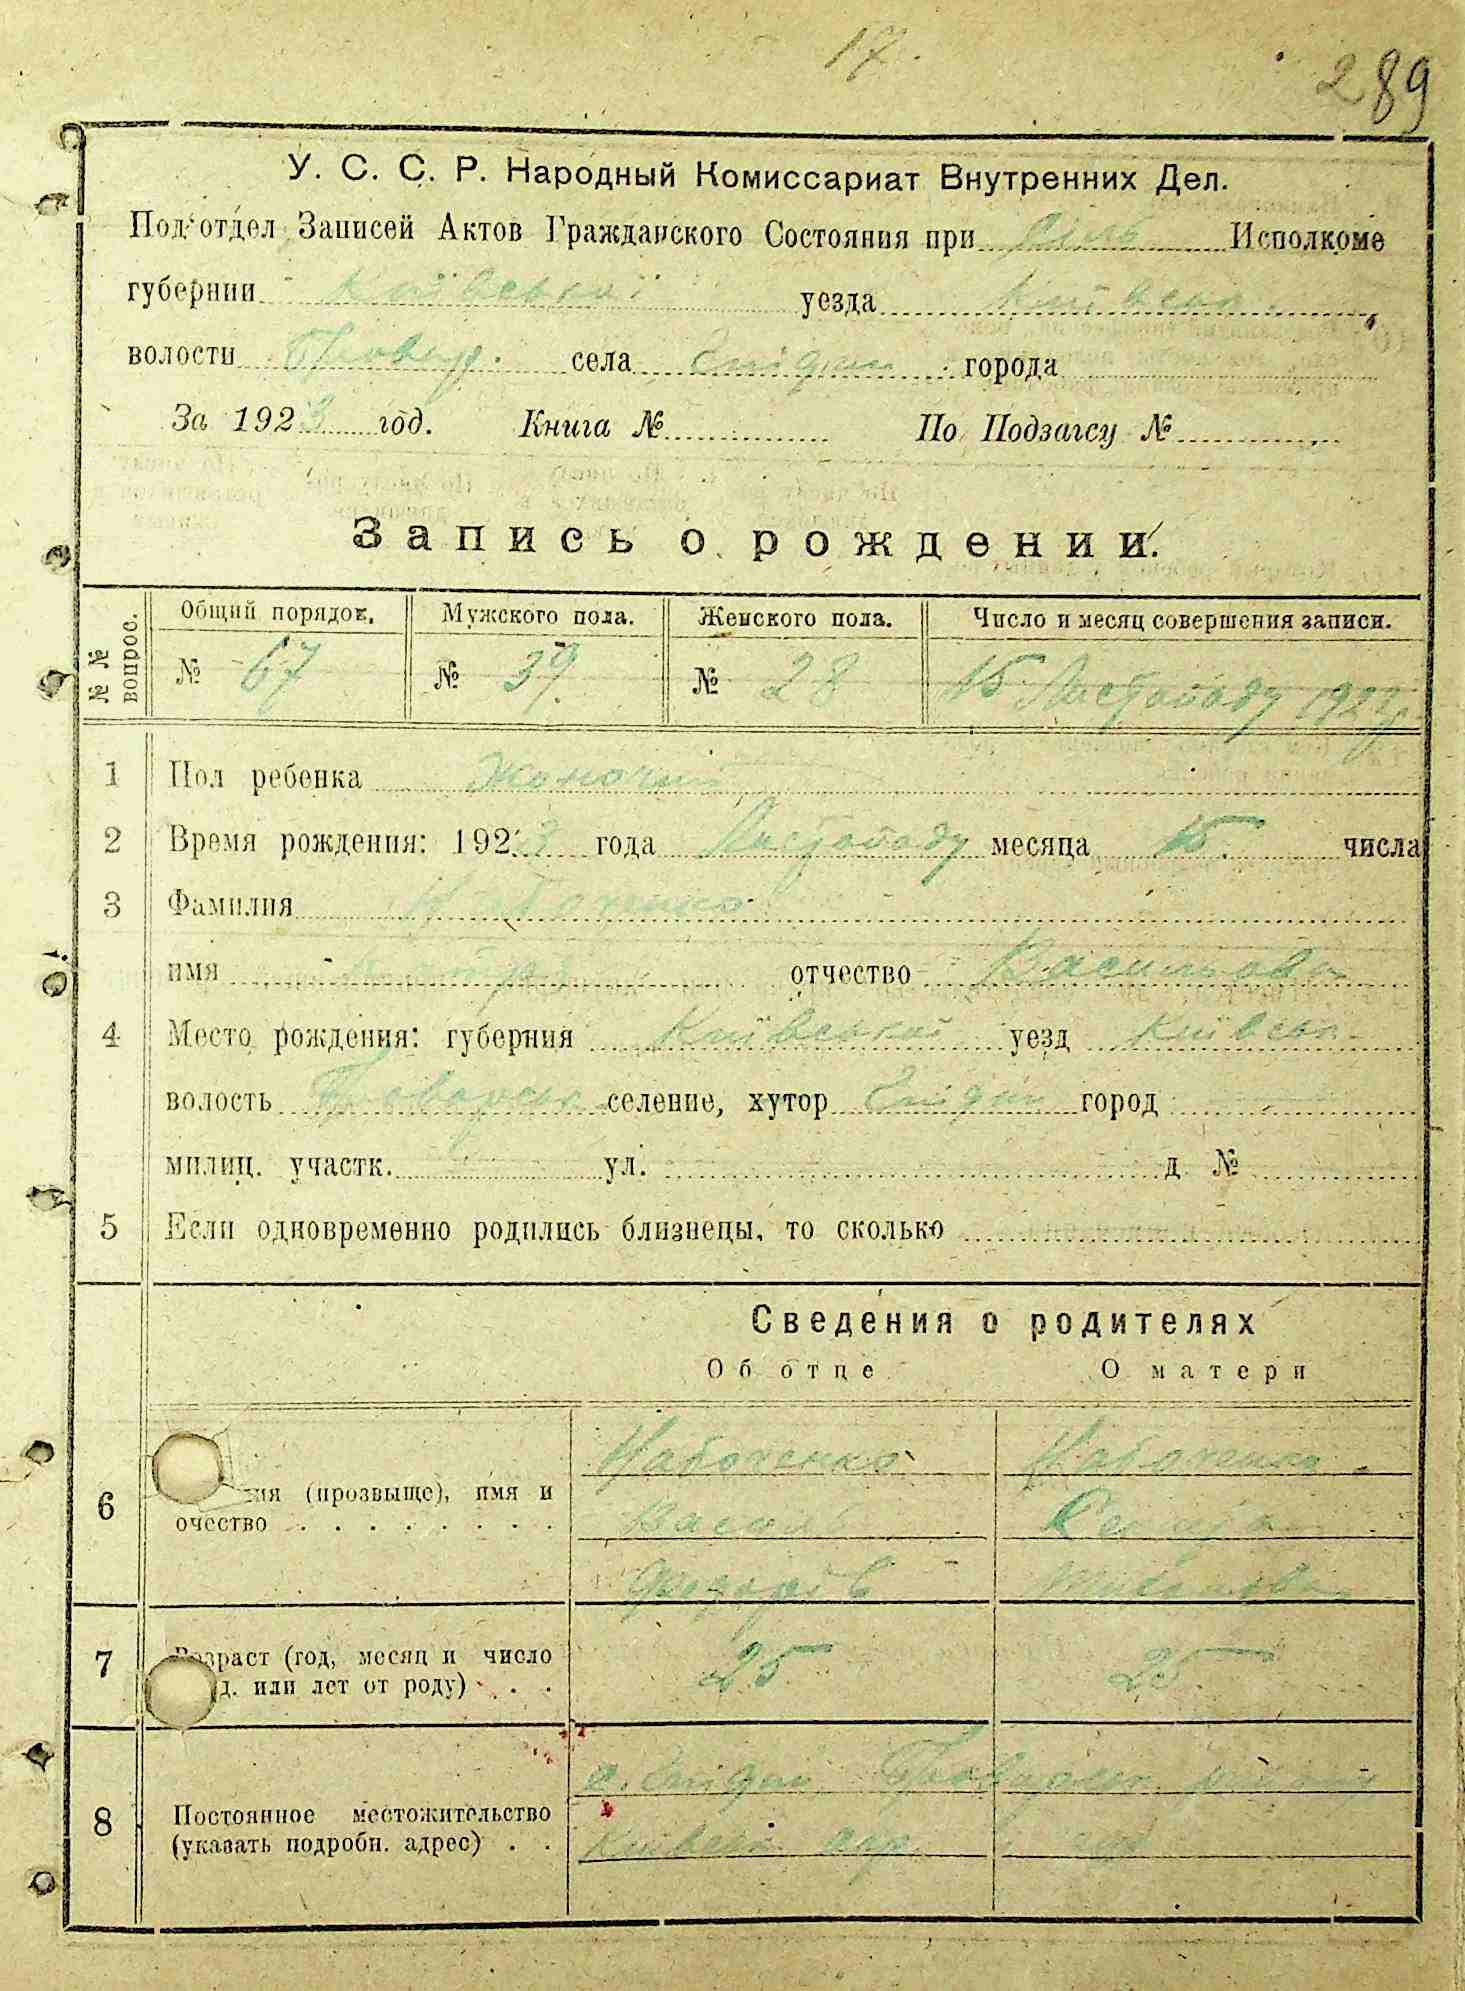 17.
289
У. С. С. Р. Народный Комиссариат Внутренних Дел.
Под'отдел Записей Актов Гражданского Состояния при Сіль Исполкоме
губернии Київської уезда Київськ.
волости Бровар. села города
За 1923 год. Книга № По Подзагсу №
Запись о рождении.
№ № вопрос. Общий порядок. Мужского пола. Женского пола. Число и месяц совершения записи.
№ 67 № 39 № 28 15 Листопаду 1923
1 Пол ребенка Жоночий
2 Время рождения: 1923 года Листопаду месяца 15 числа
3 Фамилия
имя отчество Васильова
4 Место рождения: губерния Київської уезд Київськ.
волость Броварськ селение, хутор город
милиц. участк. ул. д №
5 Если одновременно родились близнецы, то сколько
Сведения о родителях
Об отце О матери
6 ия (прозвыще), имя и
очество
Набоченко Набоченко
Василь
Федорів
7 Возраст (год, месяц и число
д. или лет от роду)
25 25
8 Постоянное местожительство
(указать подробн. адрес)
с. Броварськ.
Київськ.